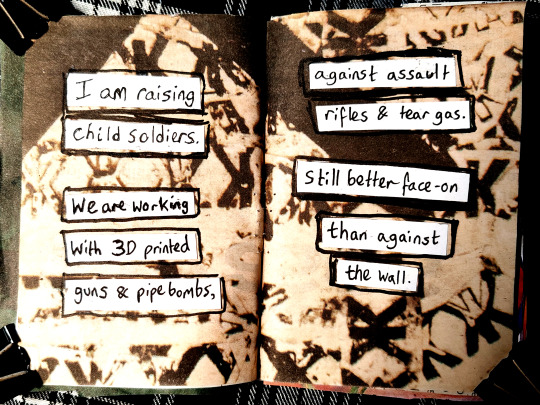 I am raising
child soldiers.
We are working
with 3D printed
guns & pipebombs,
against assault
rifles & tear gas.
still better face-on
than against
the wall.